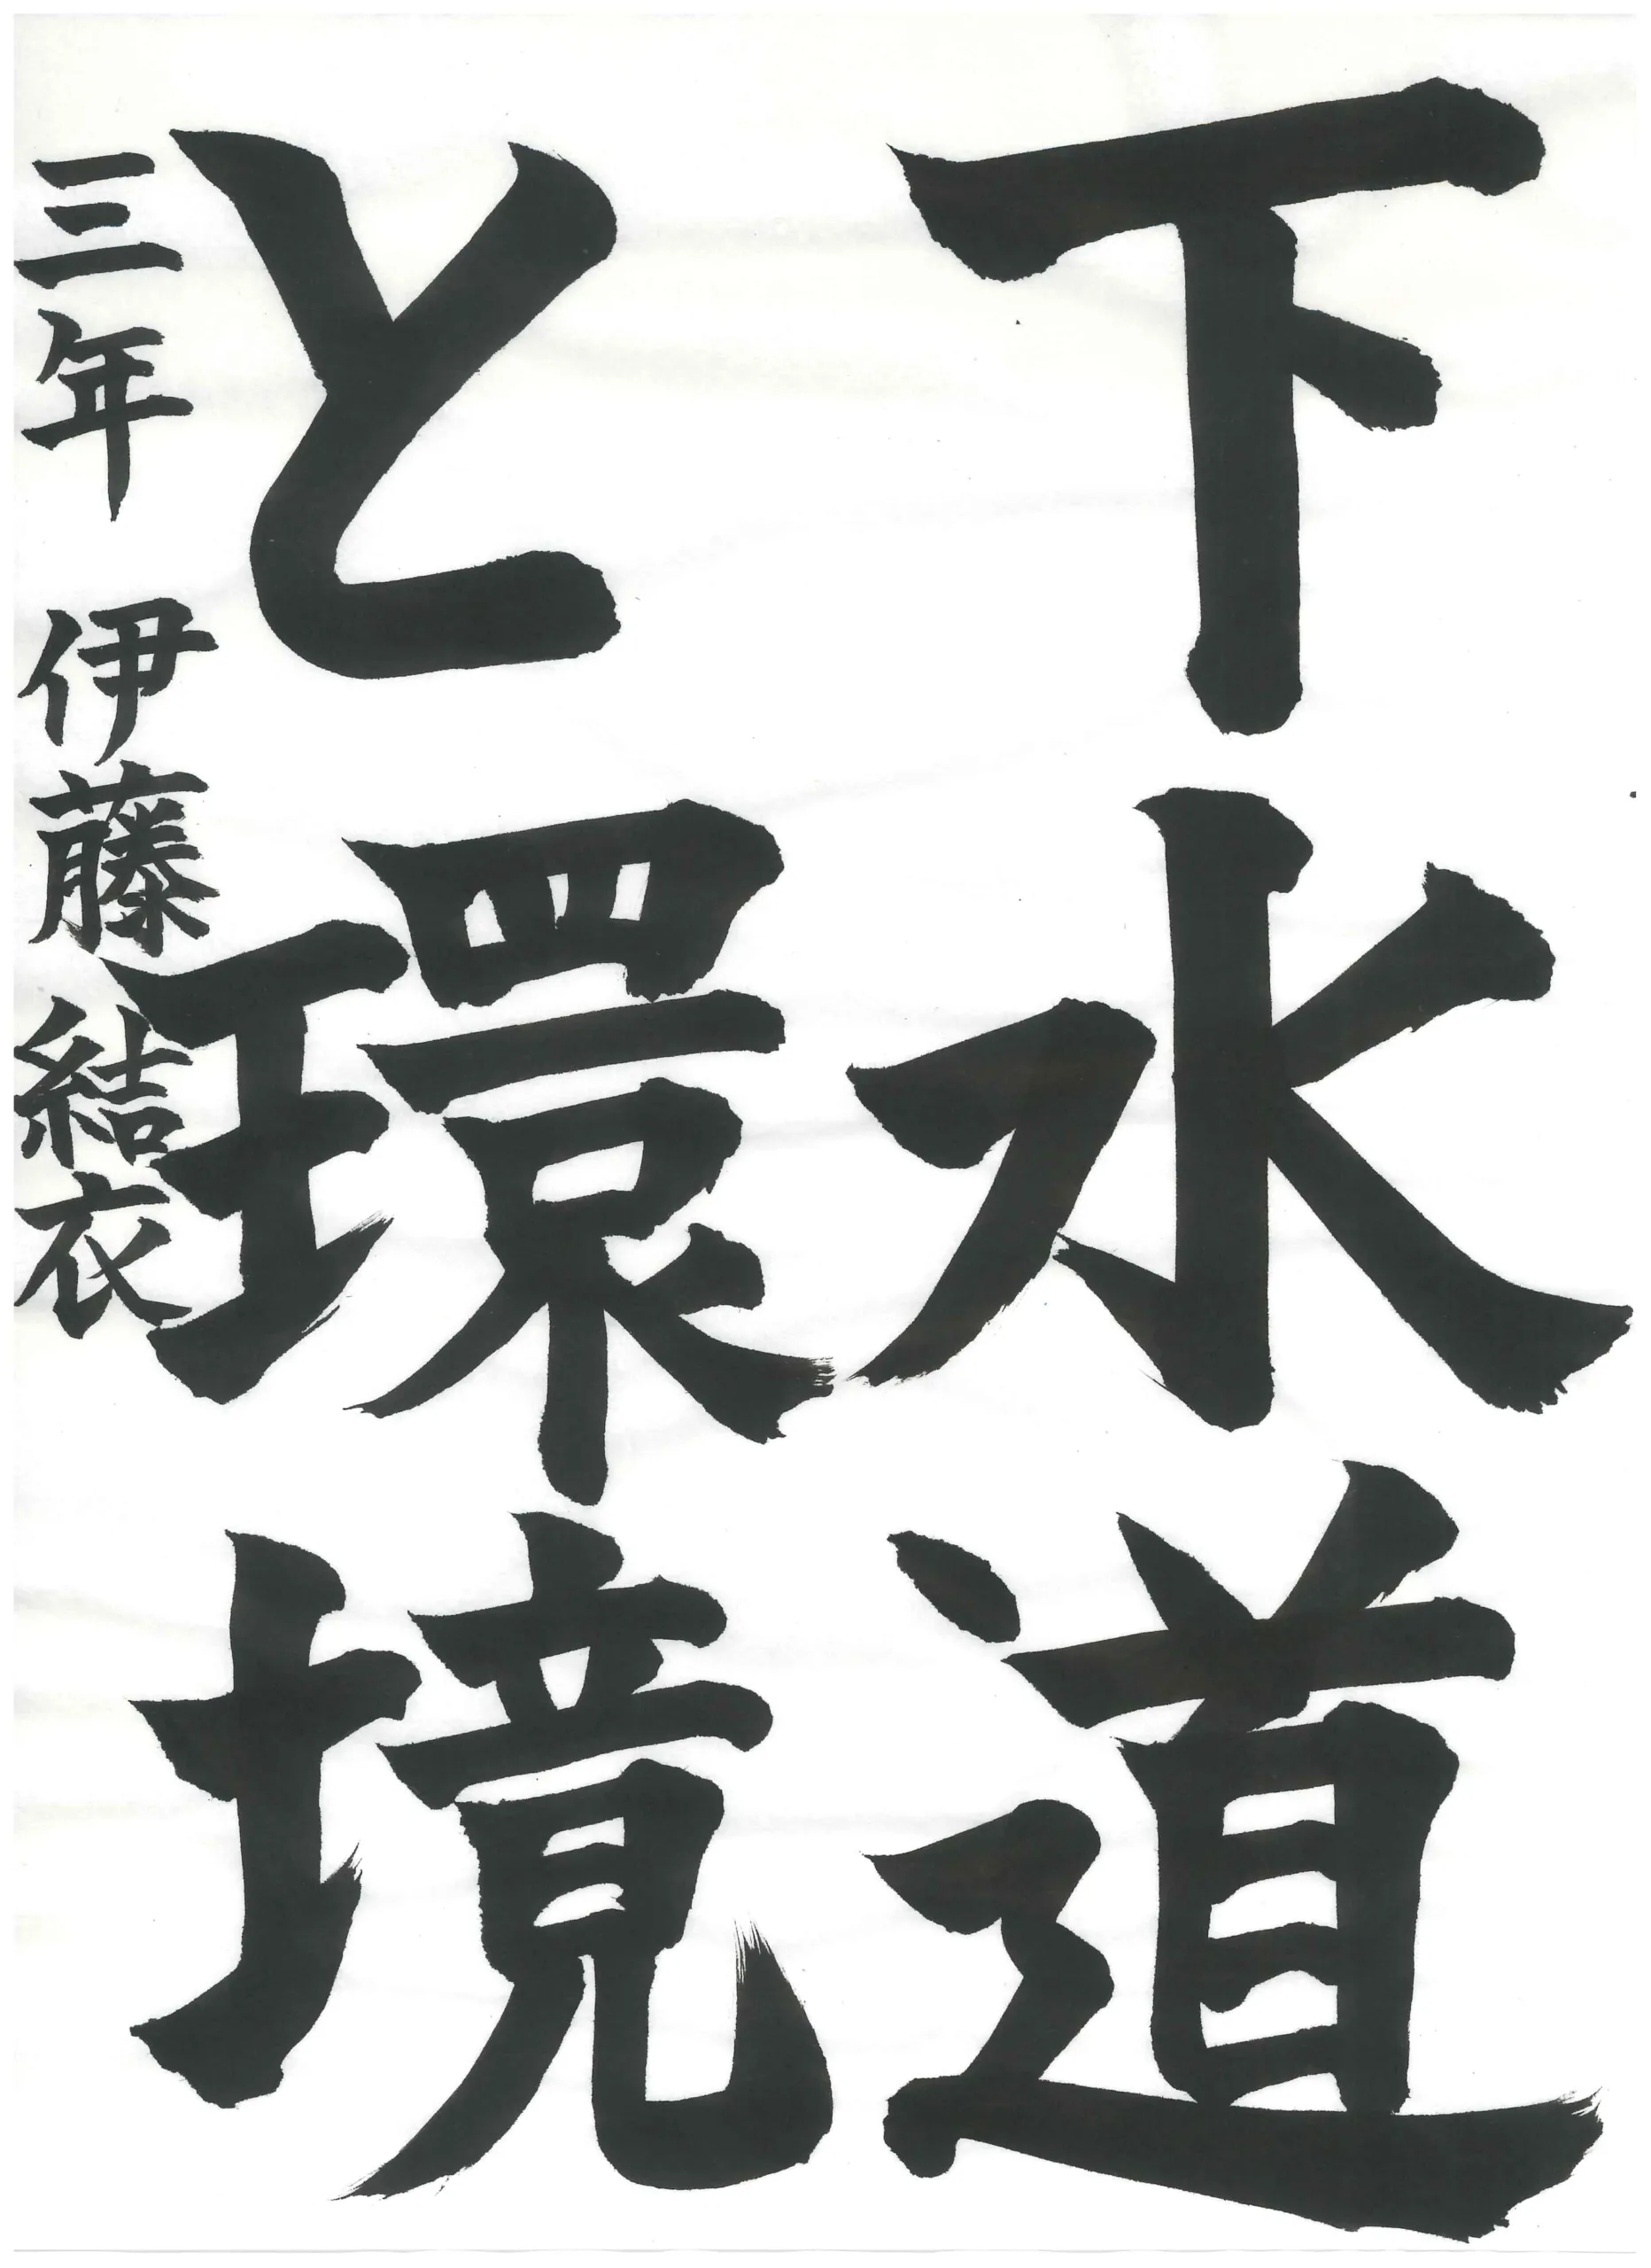 下水道
と環境
三年 伊藤結衣